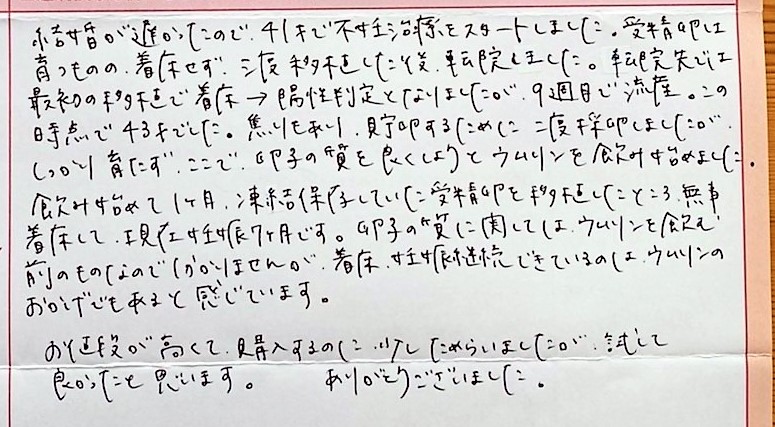 結婚が遅かったので、41才で不妊治療をスタートしました。受精卵は
育つものの、着床せず、二度移植した後、転院しました。転院先では
最初の移植で着床→陽性判定となりましたが、9週目で流産。この
時点で43才でした。焦りもあり、貯卵するために二度採卵しましたが、
しっかり育たず、ここで、卵子の質を良くしようとウムリンを飲み始めました。
飲み始めて1ヶ月、凍結保存していた受精卵を移植したところ、無事
着床して、現在妊娠7ヶ月です。卵子の質に関しては、ウムリンを飲む
前のものなので分かりませんが、着床、妊娠継続できているのは、ウムリンの
おかげでもあると感じています。
お値段が高くて、購入するのに少しためらいましたが、試して
良かったと思います。　ありがとうございました。